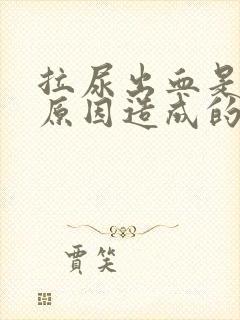 拉尿出血是
原因造成的
贾笑